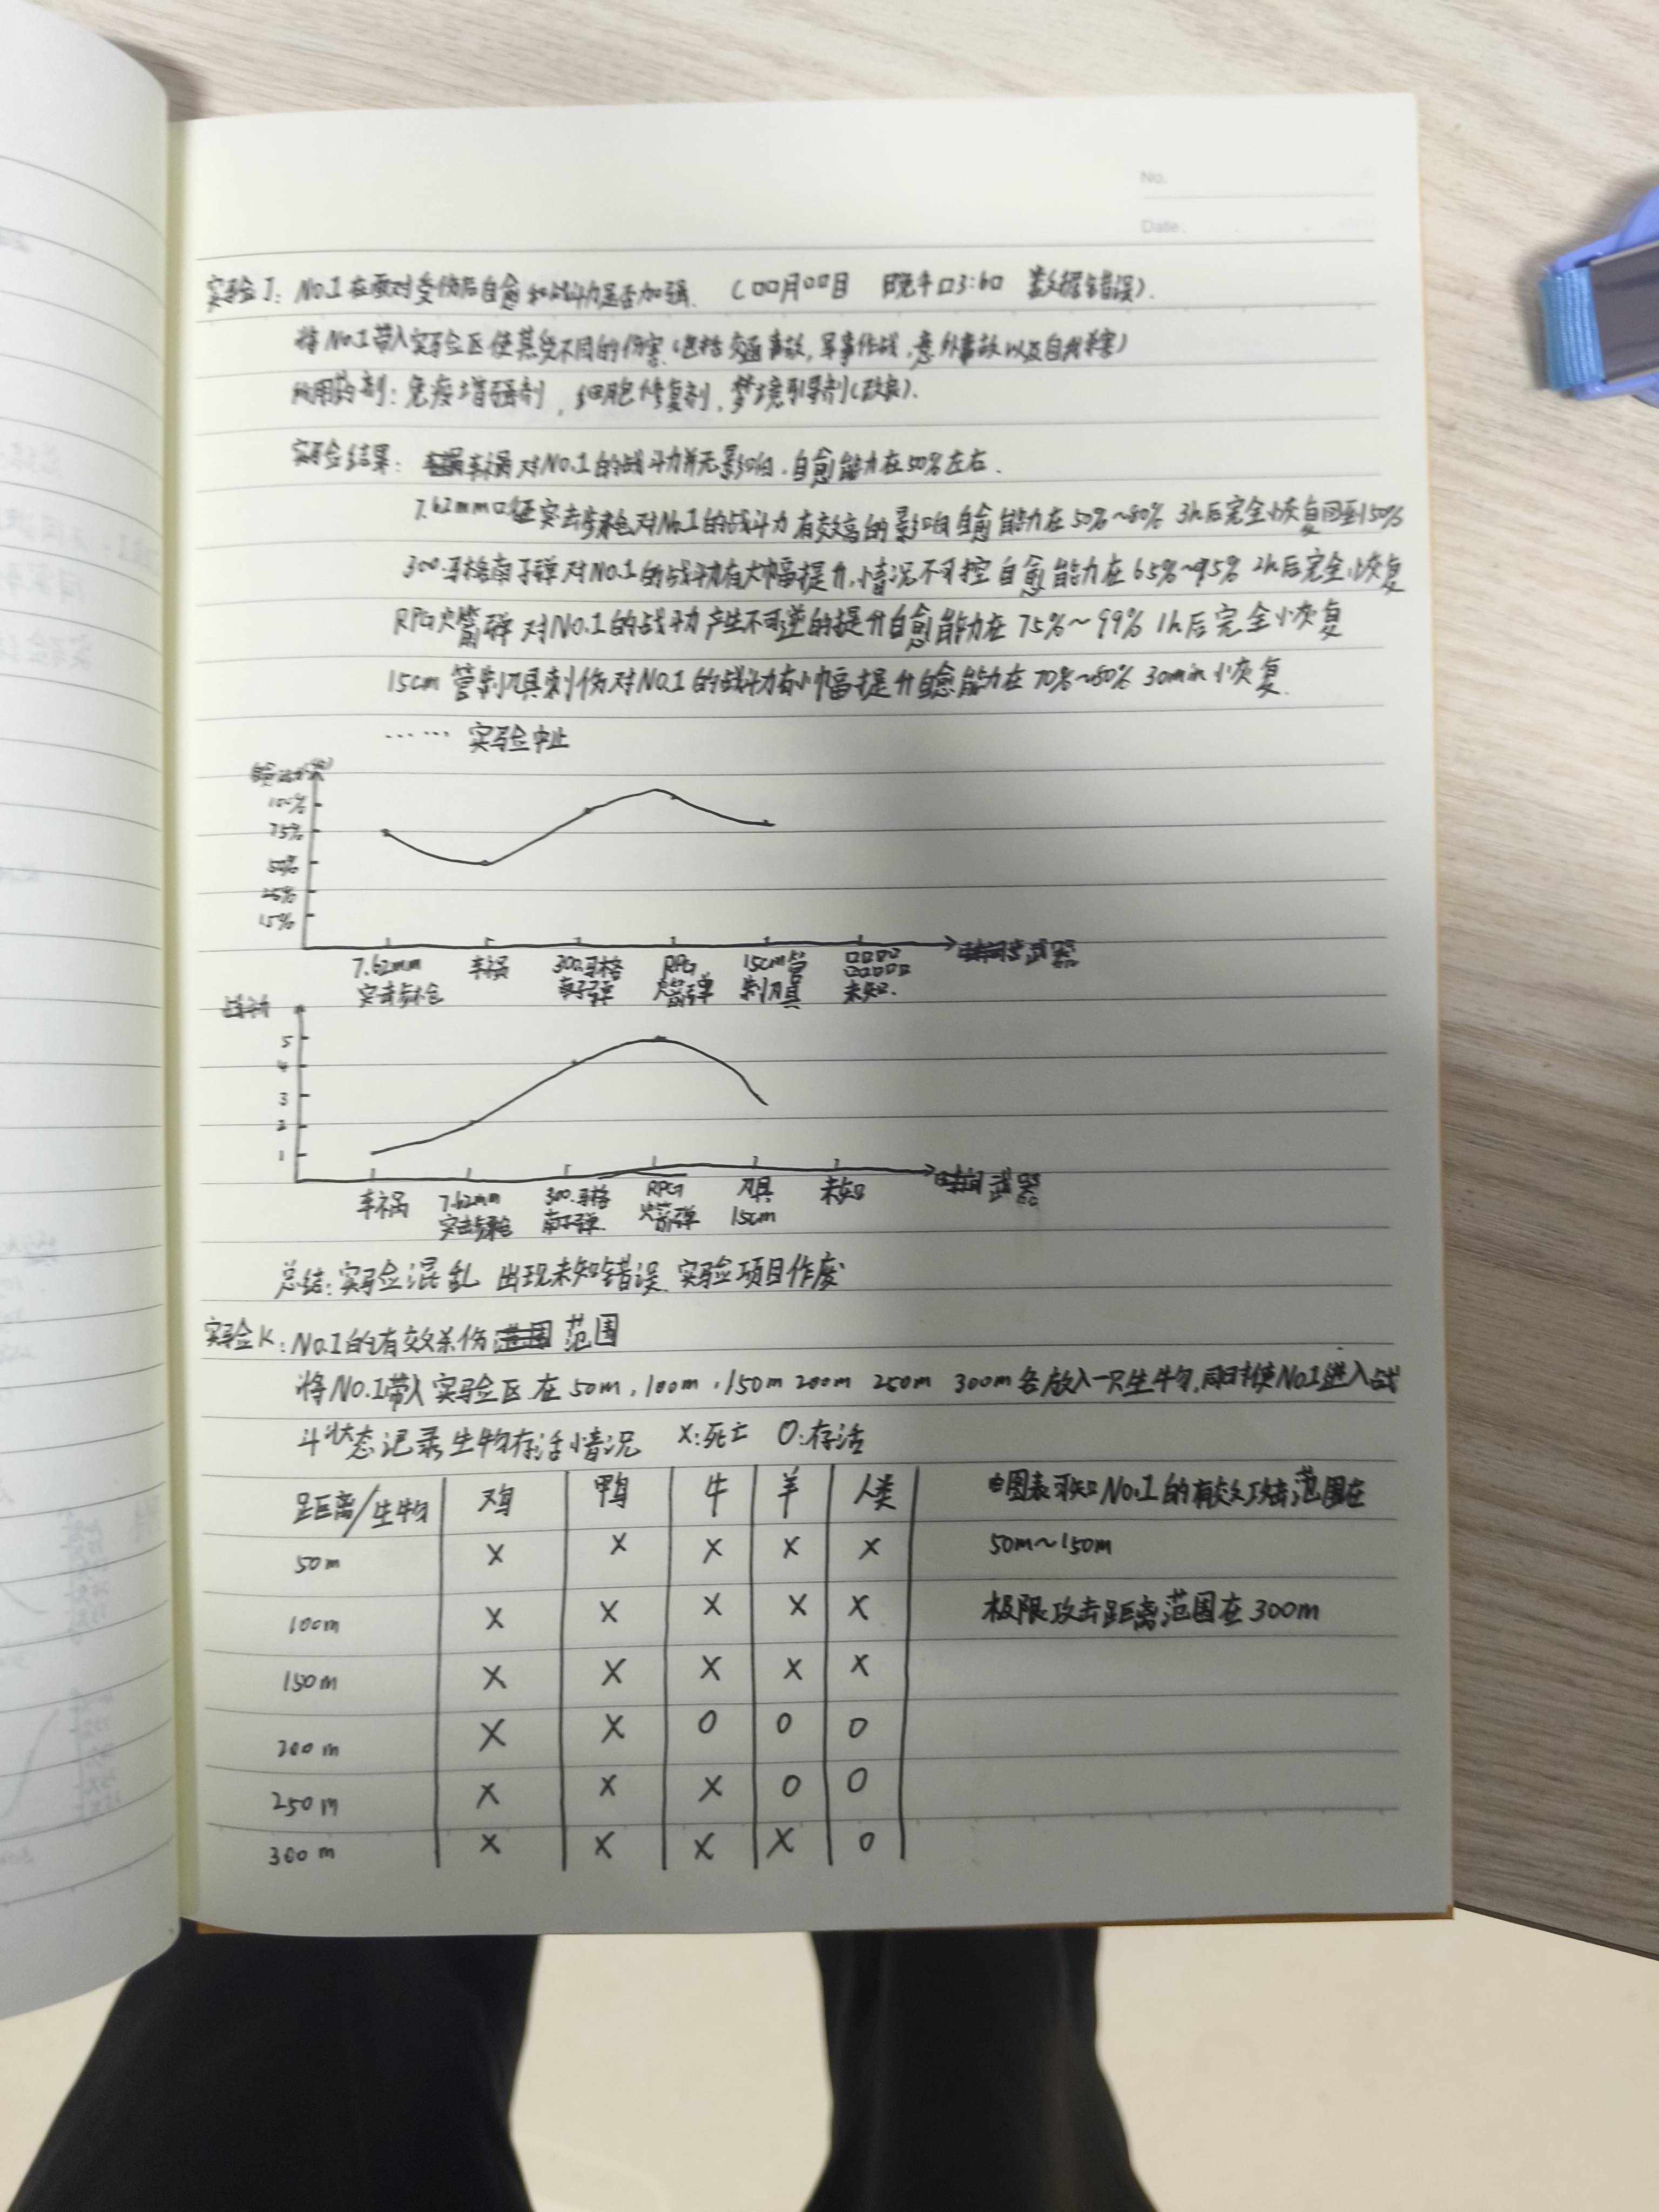 No.
Date.
实验J：No.1在面对受伤后自愈和战斗力是否加强. (□□月□□日 晚午□3:6□ 数据错误).
将No.1带入实验区使其受不同的伤害(包括交通事故,军事作战,意外事故以及自然灾害)
使用药剂：免疫增强剂, 细胞修复剂, 梦境引导剂(改良).
实验结果： 车祸对No.1的战斗力并无影响.自愈能力在50%左右.
7.62mm口径突击步枪对No.1的战斗力有较高的影响自愈能力在50%~80% 3h后完全恢复回到50%
300.马格南子弹对No.1的战斗力有大幅提升,情况不可控自愈能力在65%~95% 2h后完全恢复
RPG火箭弹对No.1的战斗力产生不可逆的提升自愈能力在75%~99% 1h后完全恢复
15cm管制刀具刺伤对No.1的战斗力有小幅提升自愈能力在70%~80% 30min恢复.
…… 实验中止
自愈能力(%)
100%
75%
50%
25%
15%
7.62mm 突击步枪
车祸
300.马格南子弹
RPG 火箭弹
15cm管制刀具
□□□□ □□□□□ 未知.
武器
战斗力
5
4
3
2
1
车祸
7.62mm 突击步枪
300.马格南子弹
RPG 火箭弹
刀具 15cm
未知
武器
总结：实验混乱 出现未知错误.实验项目作废
实验K：No.1的有效杀伤 范围
将No.1带入实验区 在50m,100m,150m 200m 250m 300m各放入一只生物,同时使No.1进入战
斗状态记录生物存活情况 X:死亡 O:存活
距离/生物 鸡 鸭 牛 羊 人类
50m X X X X X
100m X X X X X
150m X X X X X
200m X X O O O
250m X X X O O
300m X X X X O
由图表可知No.1的有效攻击范围在
50m~150m
极限攻击距离范围在300m